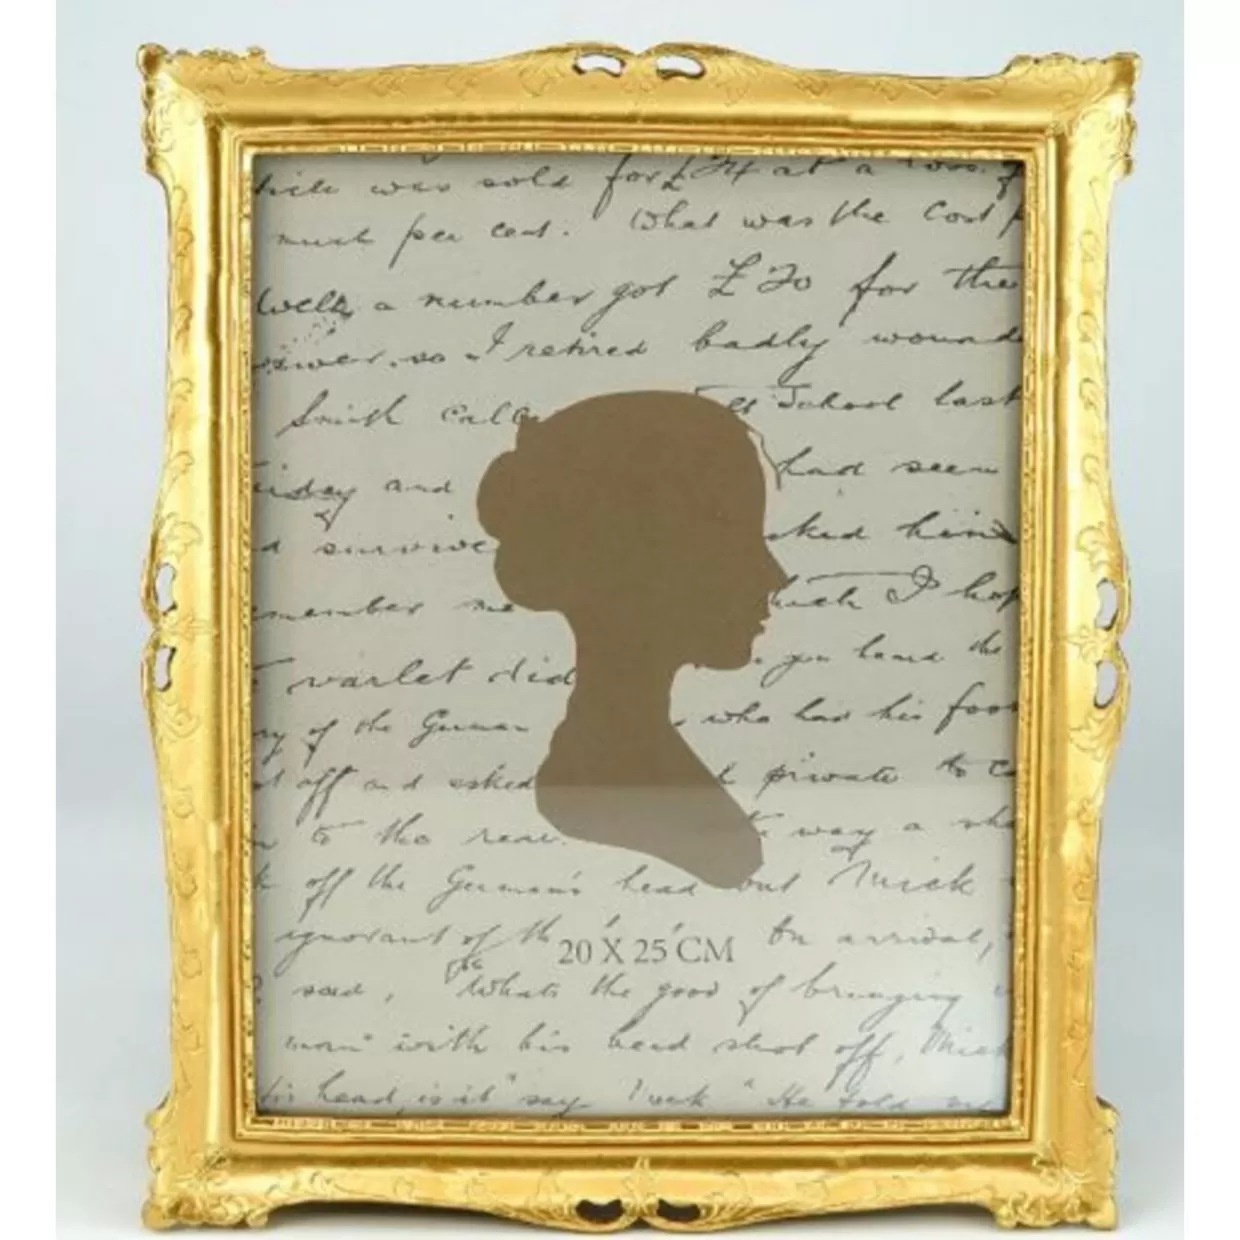 was sold for £24 at a loss of
much per cent. What was the Cost
Well, a number got £20 for the
so I retired badly wounde
Smith Calle School last
and had seen
d survive sked him
member me I hop
varlet did you heard the
ry of the German who had his foot
off and asked private to ca
to the rear. way a she
off the German's head but Mick
ignorant of th On arrival,
20 X 25 CM
said, "Whats the good of bringing
man" with his head shot off, Mick
his head, is it" say "He told